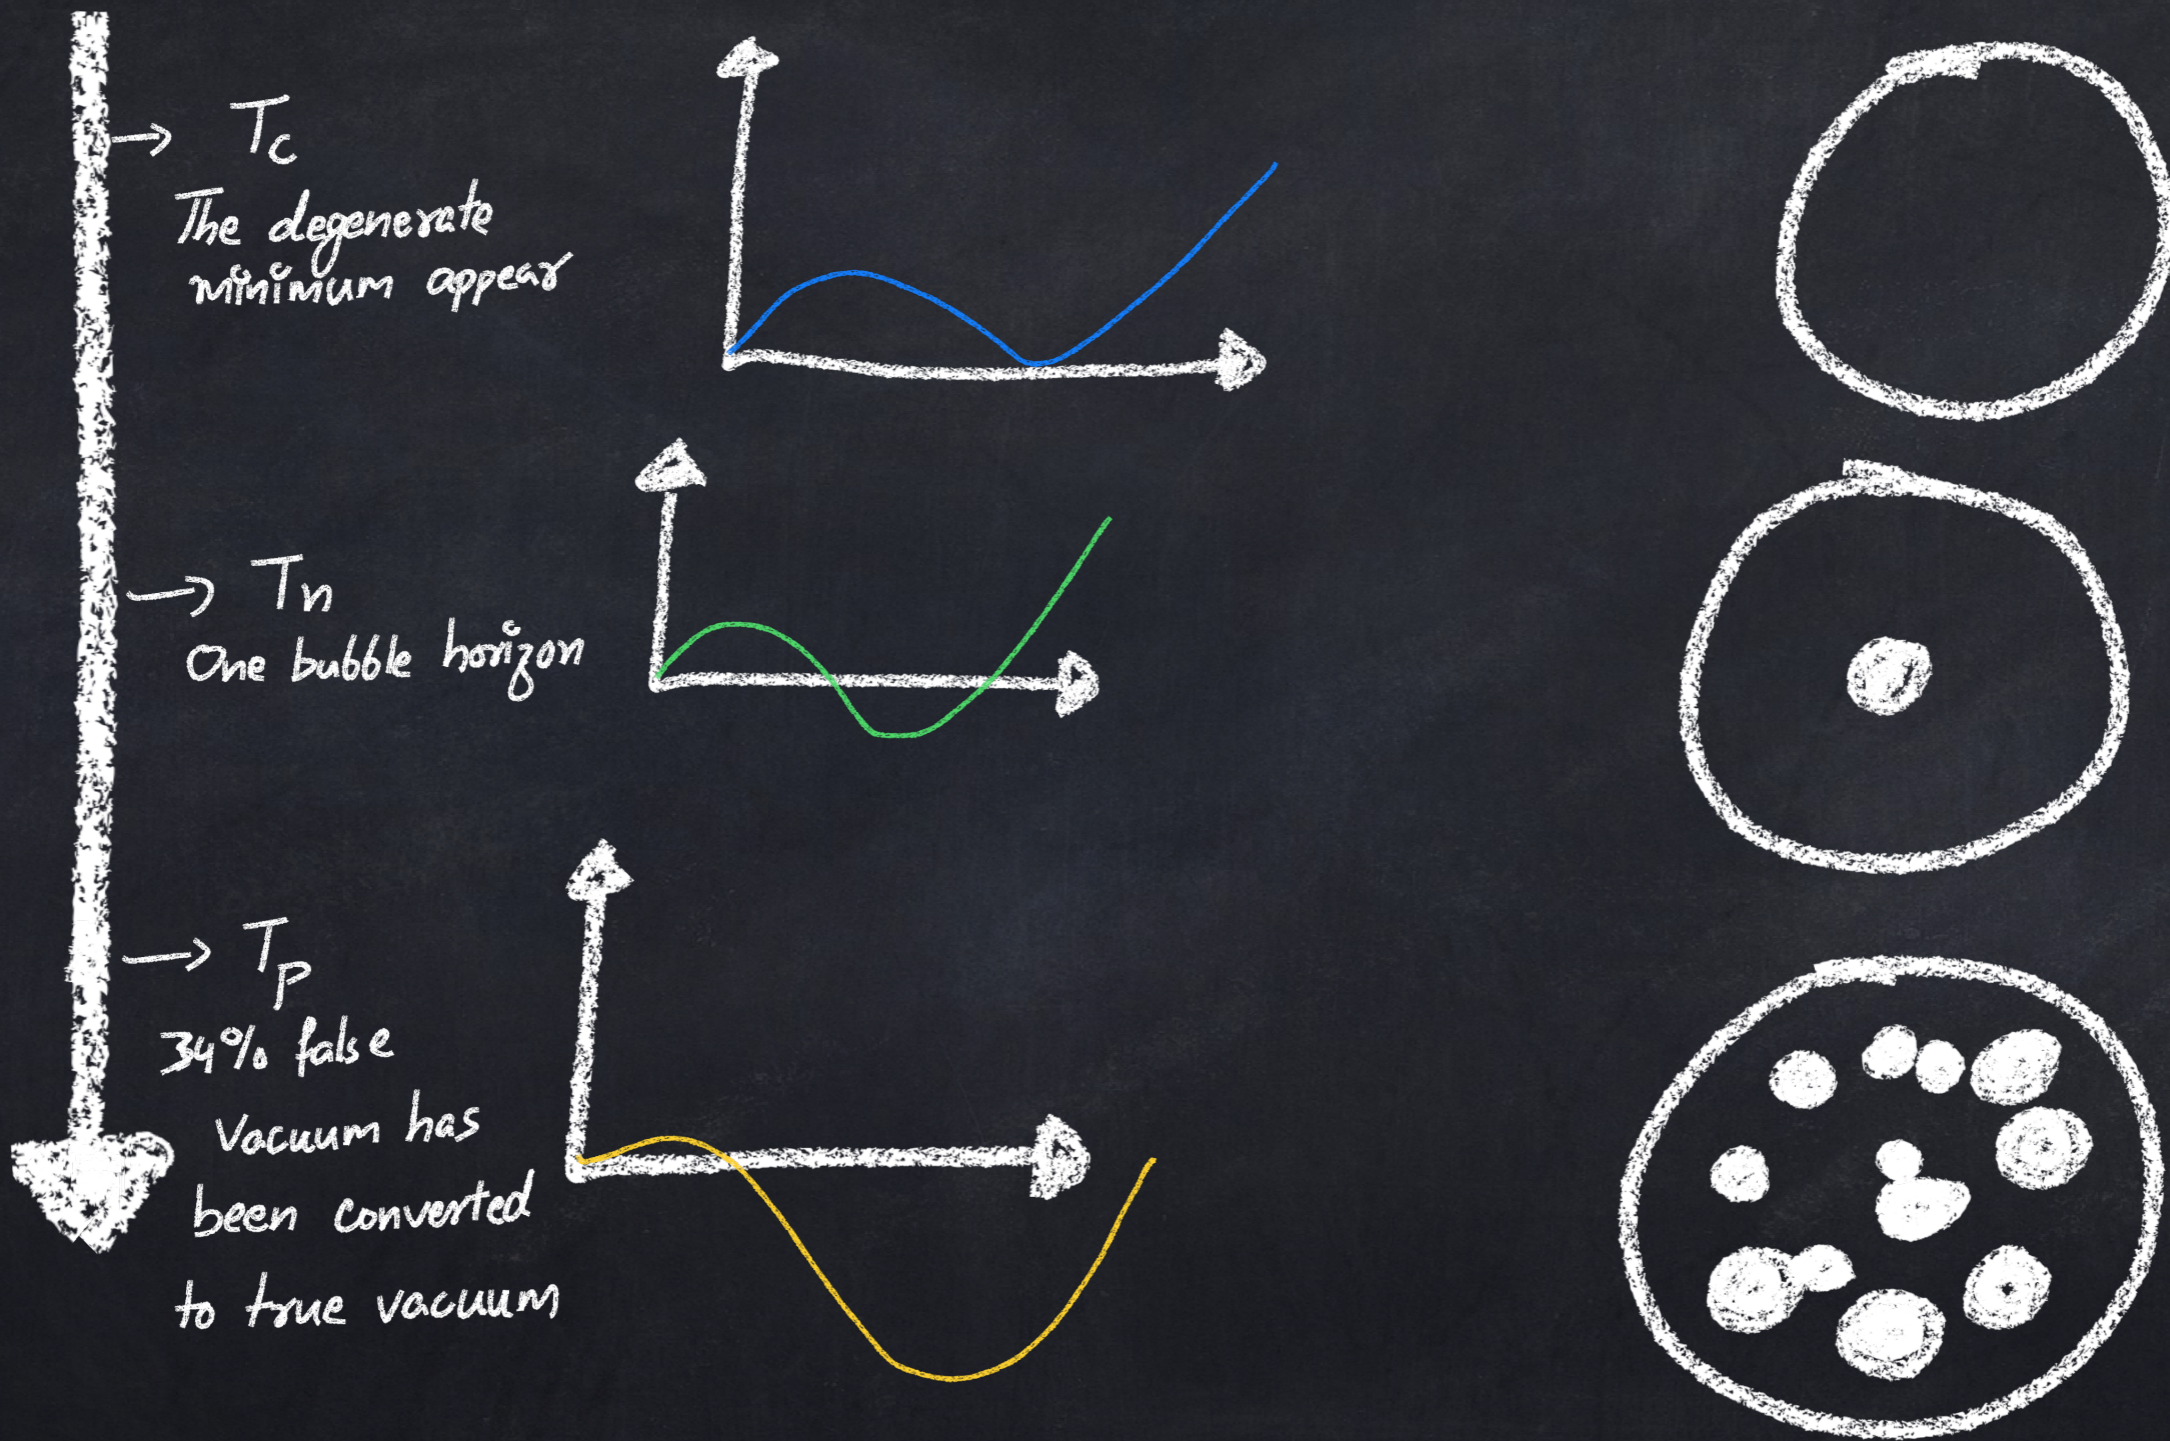 → Tc
The degenerate
minimum appear
→ Tn
One bubble horizon
→ Tp
34% false
vacuum has
been converted
to true vacuum